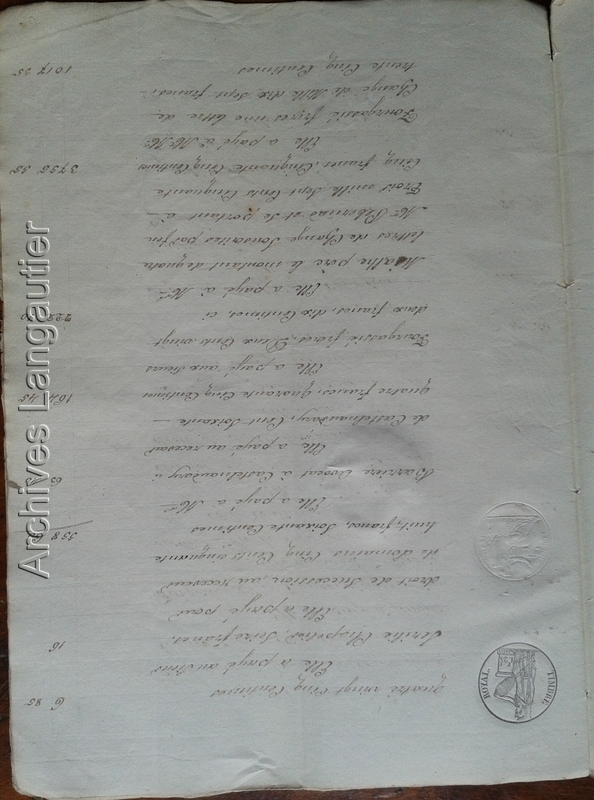 quatre vingt Cinq Centimes 6 85
Elle a payé au Sieur
Chapelier Seize francs. 16
Elle a payé pour
droit de Succession, au receveur
de domaines Cinq Cents cinquante
huit francs, Soixante Centimes 558
Elle a payé à Mr.
Barrière avocat à Castelnaudary, ci 65
Elle a payé au receveur
de Castelnaudary, Cent Soixante
quatre francs, quarante Cinq Centimes 164 45
Elle a payé aux sieurs
Fourgassié frères, Deux Cents vingt
deux francs, dix Centimes, ci 222
Elle a payé à Mr.
père le montant de quatre
lettres de Change Souscrites par feu
Mr. et Se portant à
Trois mille Sept Cents Cinquante
Cinq francs, Cinquante Cinq Centimes 3755 55
Elle a payé à Mrs.
Fourgassié frères une lettre de
Change de Mille dix Sept francs
trente Cinq Centimes 1017 35
TIMBRE ROYAL
Archives Langautier